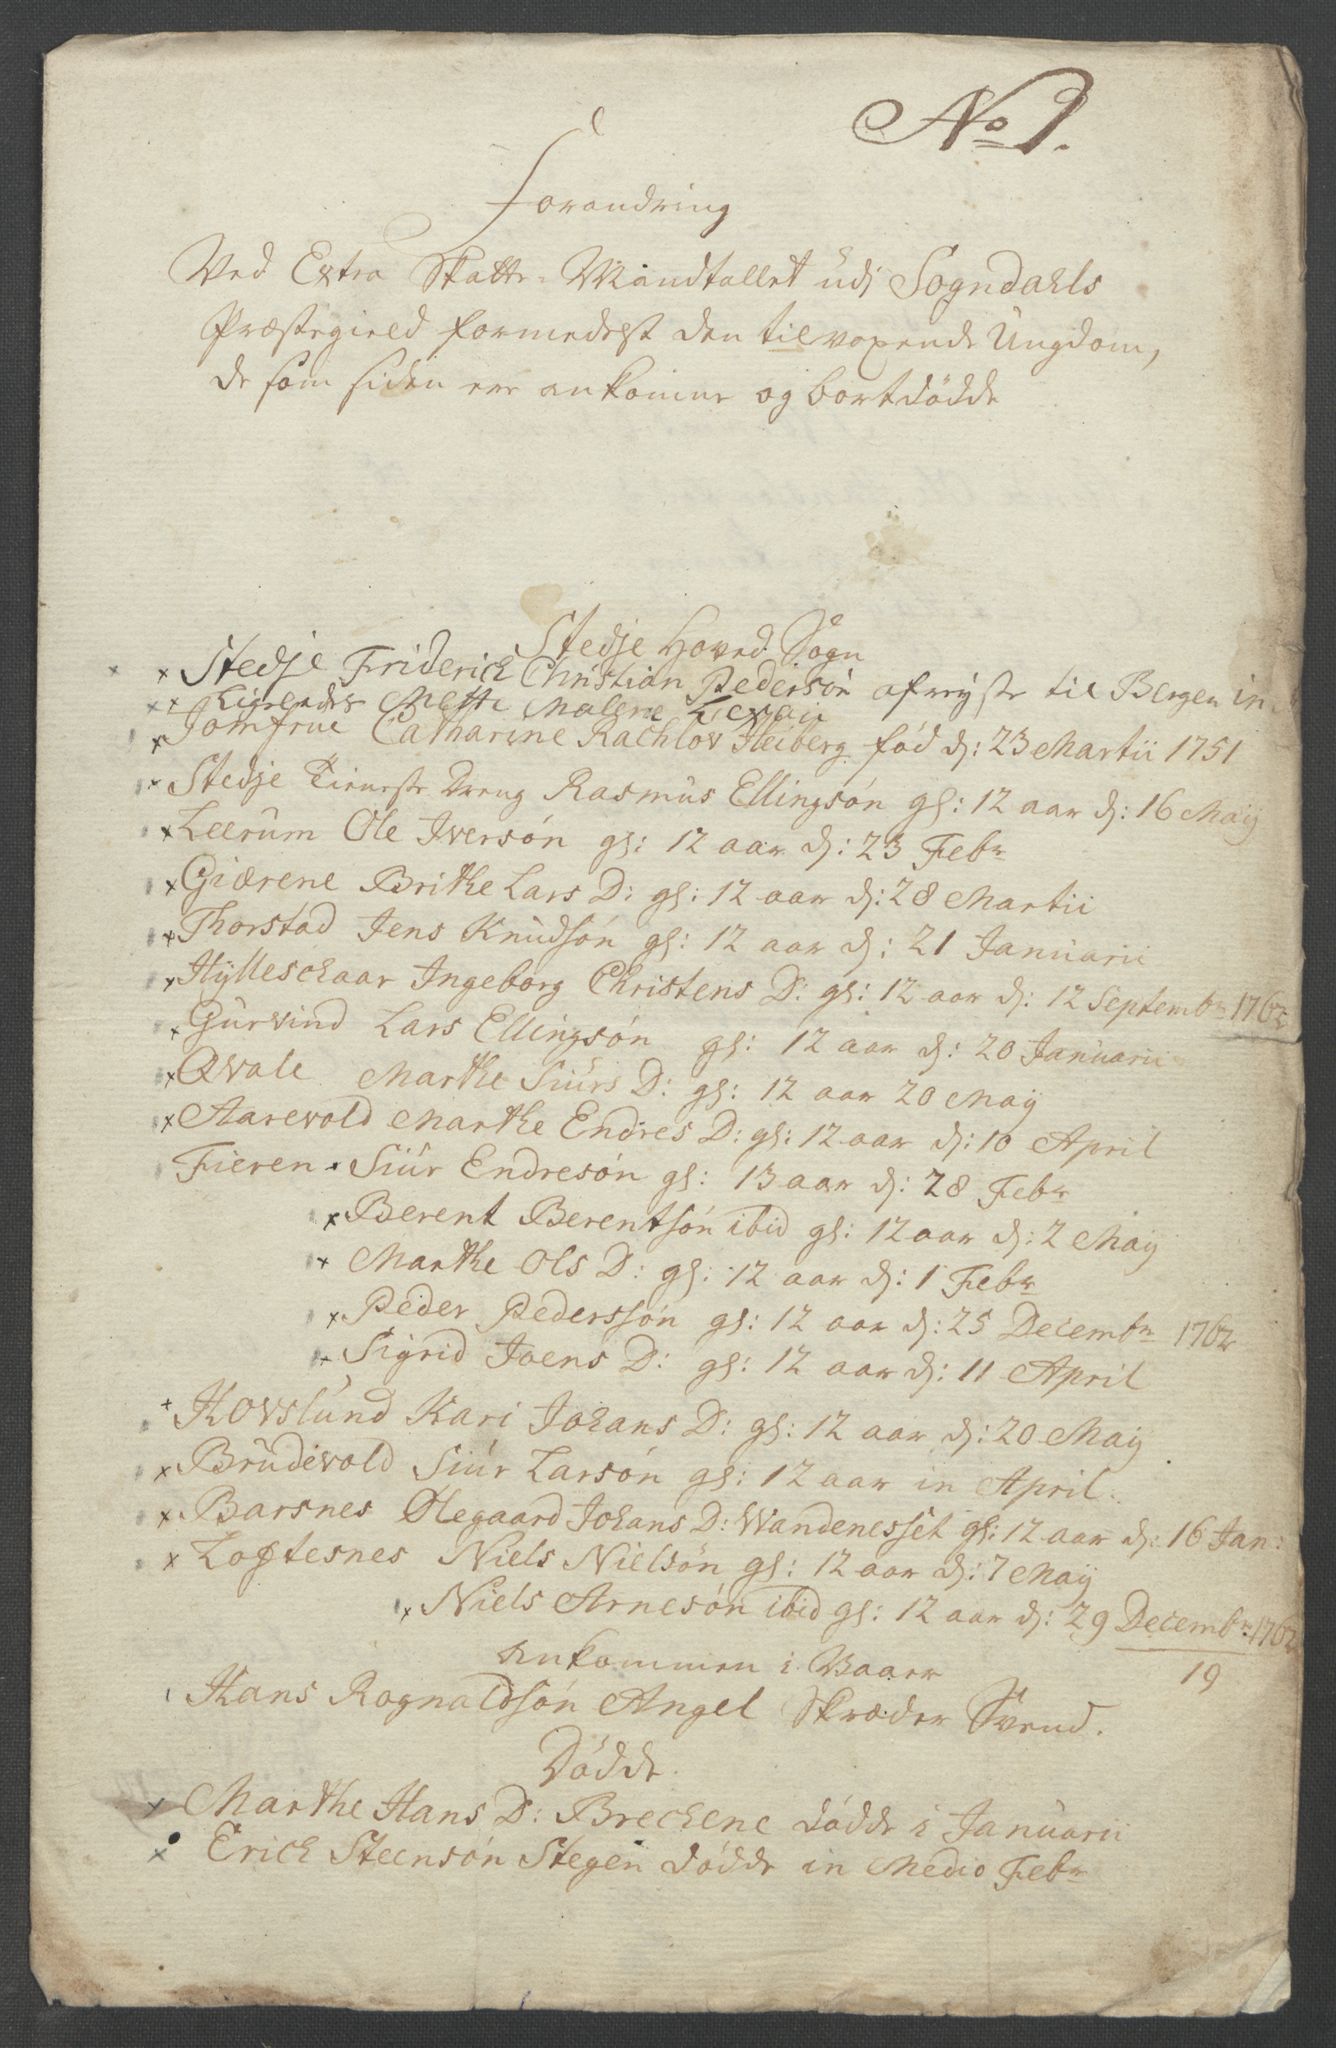 No 1.
Forandring
Ved Extra Skatte-Mandtallet udj Sogndahls
Præstegield formedelst den tilvoxende Ungdom,
de som siden ere ankomne og bortdödde
Stedje Hoved Sogn
Stedje Friderich Christian Pedersön afreyste til Bergen in
Mette Malene
Jomfrue Catharine Rachlov Heiberg fód d: 23 Martii 1751
Stedje Tieneste Dreng Rasmus Ellingsón gl: 12 aar d: 16 Maij
Leerum Ole Iversón gl: 12 aar d: 23 Febr
Giærene Brithe Lars D: gl: 12 aar d: 28 Martii
Thorstad Jens Knudsón gl: 12 aar d: 21 Januarii
Hÿlleschaar Ingeborg Christens D: gl: 12 aar d: 12 Septembr 1762
Gurvind Lars Ellingsón gl: 12 aar d: 20 Januarii
Qvale Marthe Siurs D: gl: 12 aar 20 Maij
Aarevold Marthe Endres D: gl: 12 aar d: 10 April
Fieren Siur Endresón gl: 13 aar d: 28 Febr
Berent Berentsón ibid gl: 12 aar d: 2 Maij
Marthe Ols D: gl: 12 aar d: 1 Febr
Peder Pederssón gl: 12 aar d: 25 Decembr 1762
Sigrid Joens D: gl: 12 aar d: 11 April
Kovslund Kari Johans D: gl: 12 aar d: 20 Maij
Brudevold Siur Larsón gl: 12 aar in April
Barsnes Olegaard Johans D: Wandenesset gl: 12 aar d: 16 Jan:
Loftesnes Niels Nielsón gl: 12 aar d: 7 Maij
Niels Arnesón ibid gl: 12 aar d: 29 Decembr 1762
19
Ankommen i Vaaer
Hans Rognaldsón Angel Skræder Svend.
Dödde.
Marthe Hans D: Brechene dödde i Januarii
Erich Steensón Stegen dödde in Medio Febr